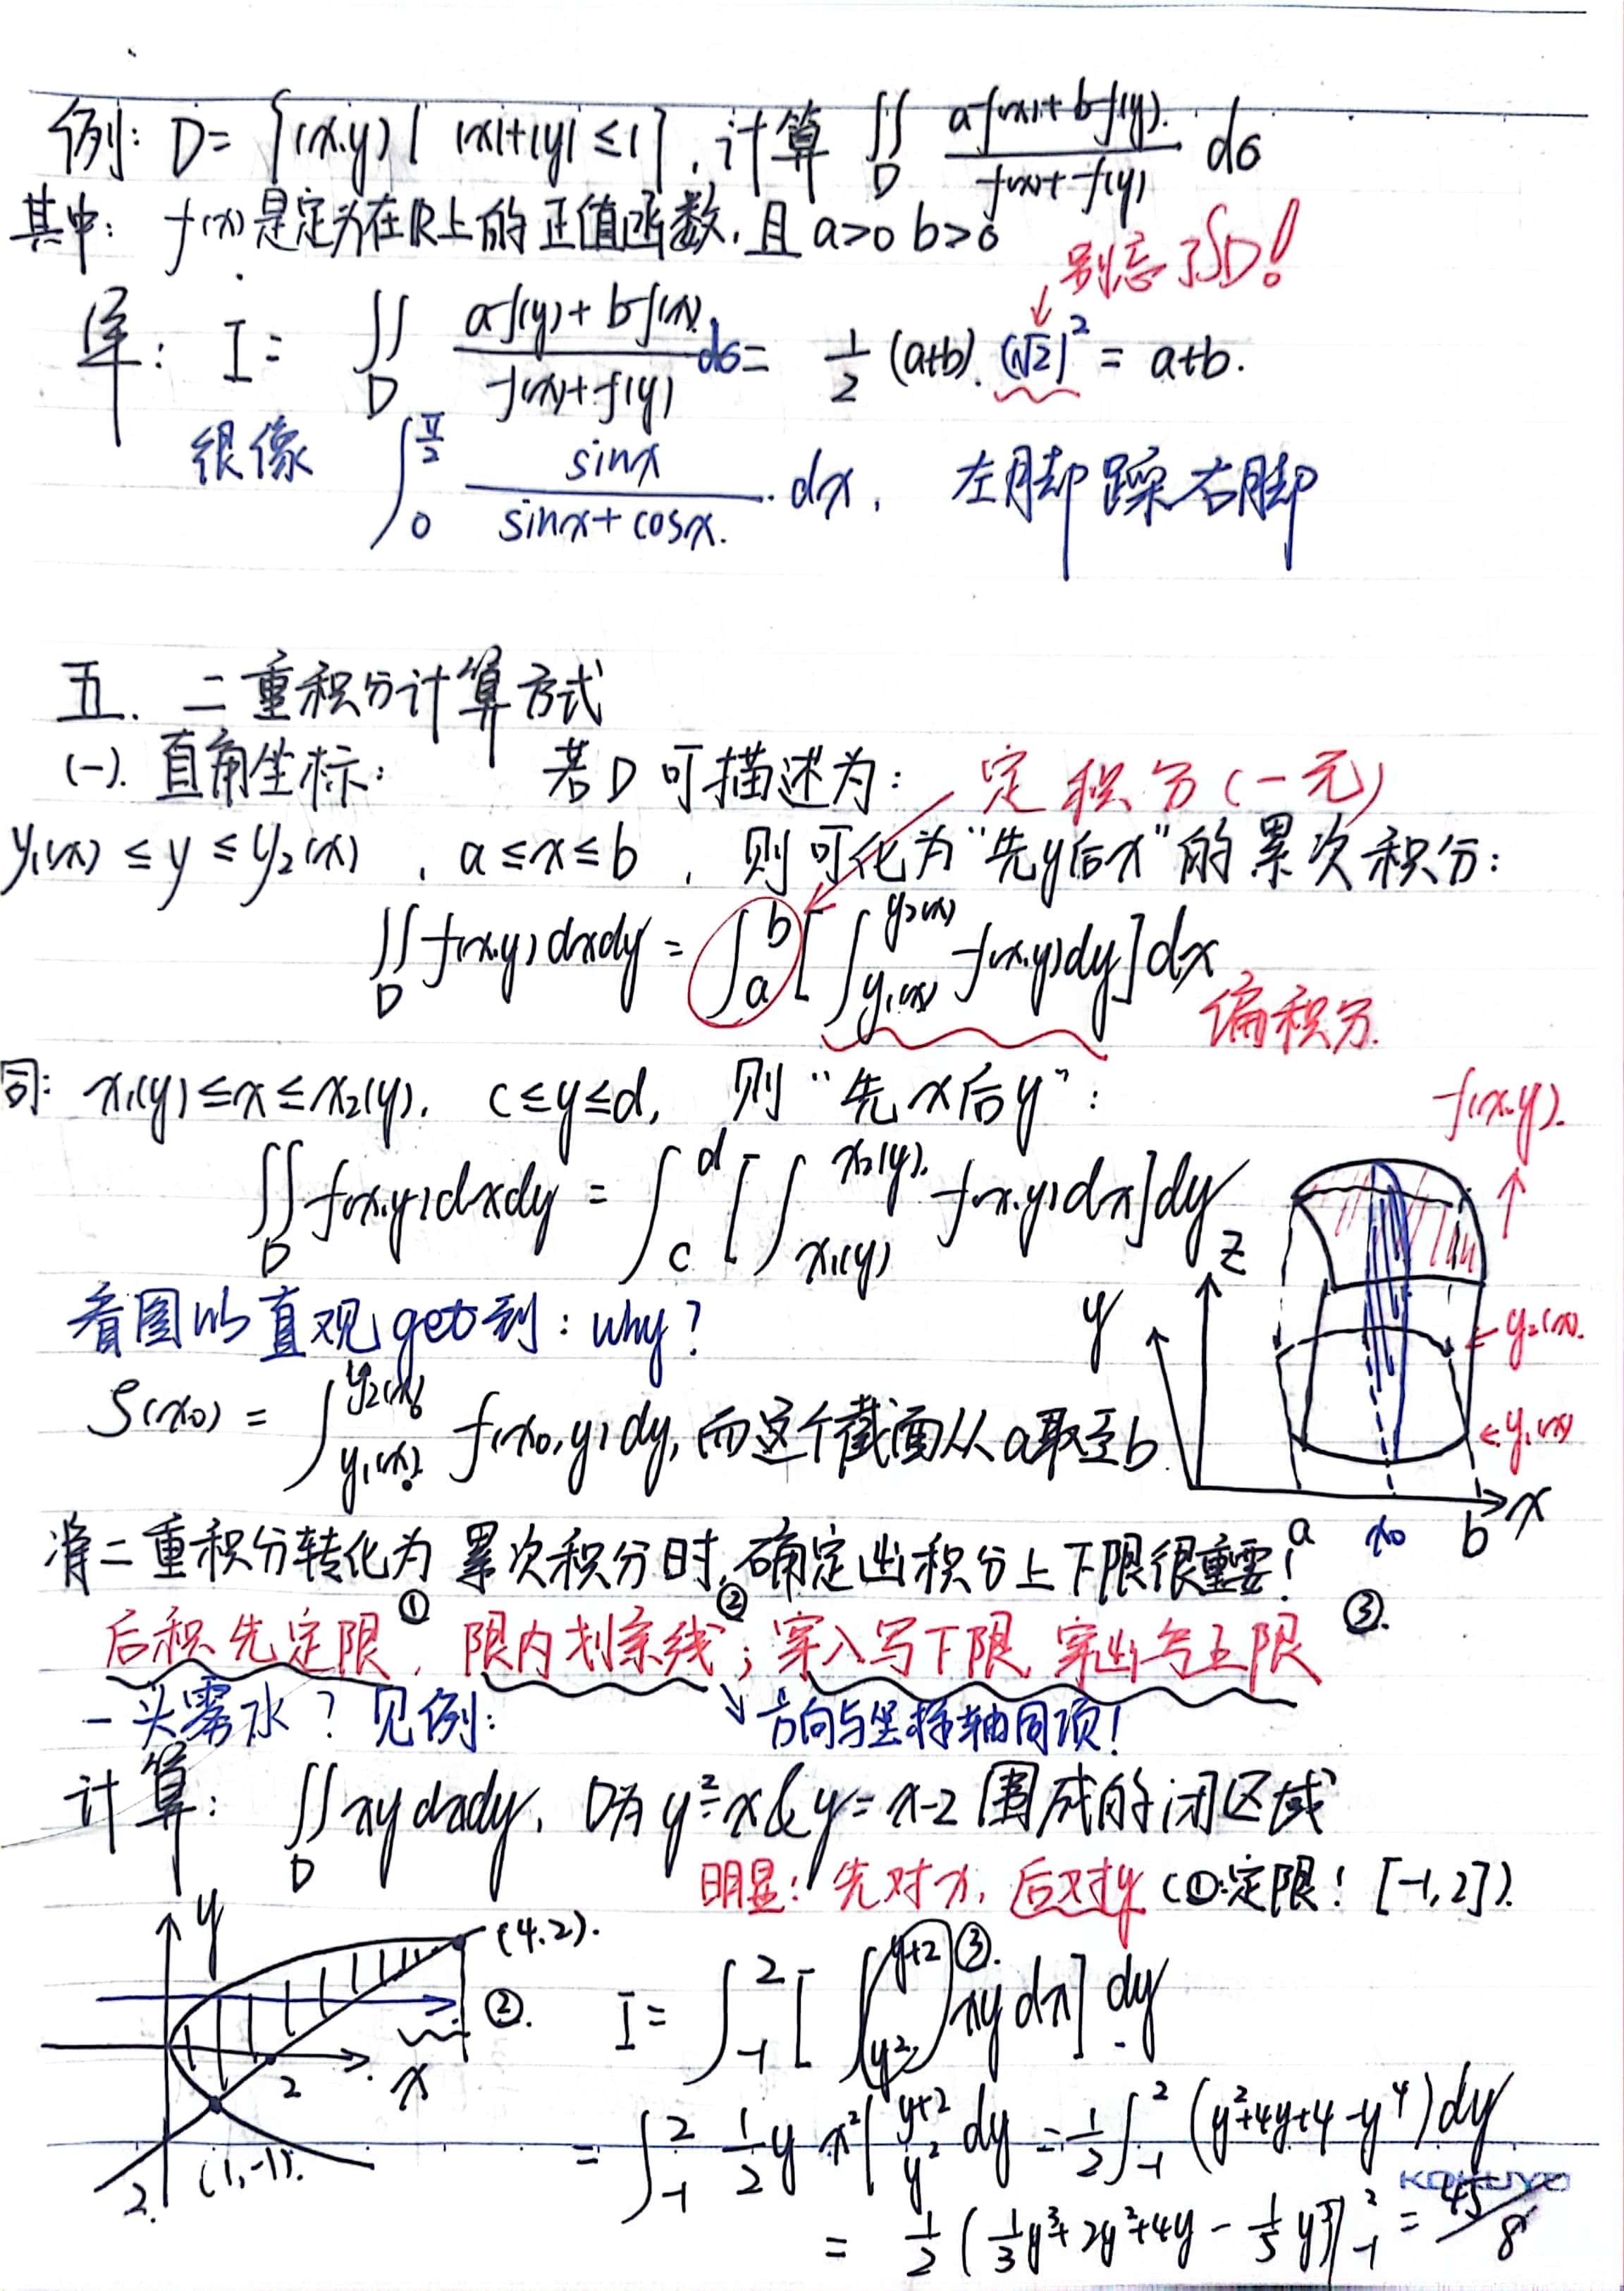 例: D = {(x,y) | |x|+|y| ≤ 1}, 计算 ∬_D (af(x)+bf(y))/(f(x)+f(y)) dσ
其中: f(x)是定为在R上的正值函数, 且 a>0 b>0
别忘了SD!
解: I = ∬_D (af(y)+bf(x))/(f(x)+f(y)) dσ = 1/2 (a+b)·(√2)² = a+b.
很像 ∫_0^{π/2} sinx/(sinx+cosx) dx, 左脚踩右脚
五. 二重积分计算方式
(一). 直角坐标: 若D可描述为: 定积分(一元)
y₁(x) ≤ y ≤ y₂(x), a ≤ x ≤ b, 则可化为"先y后x"的累次积分:
∬_D f(x,y)dxdy = ∫_a^b [∫_{y₁(x)}^{y₂(x)} f(x,y)dy]dx
偏积分.
同: x₁(y) ≤ x ≤ x₂(y), c ≤ y ≤ d, 则"先x后y":
∬_D f(x,y)dxdy = ∫_c^d [∫_{x₁(y)}^{x₂(y)} f(x,y)dx]dy
f(x,y).
z
y
y₂(x).
y₁(x)
a x₀ b x
看图以直观get到: why?
S(x₀) = ∫_{y₁(x₀)}^{y₂(x₀)} f(x₀,y)dy, 而这个截面从a取至b
将二重积分转化为累次积分时, 确定出积分上下限很重要!
后积先定限①, 限内划条线②; 穿入写下限, 穿出写上限③.
一头雾水? 见例: ↘方向与坐标轴同项!
计算: ∬_D xy dxdy, D为 y²=x & y=x-2 围成的闭区域
明显: 先对x, 后对y (①:定限! [-1,2]).
y
(4,2).
②.
2
x
(1,-1).
2.
I = ∫_{-1}^2 [∫_{y²}^{y+2} xy dx] dy ③.
= ∫_{-1}^2 1/2 y x² |_{y²}^{y+2} dy = 1/2 ∫_{-1}^2 (y²+4y+4-y⁴)dy
KOKUYO
= 1/2 (1/3 y³+2y²+4y - 1/5 y⁵)|_{-1}^2 = 45/8